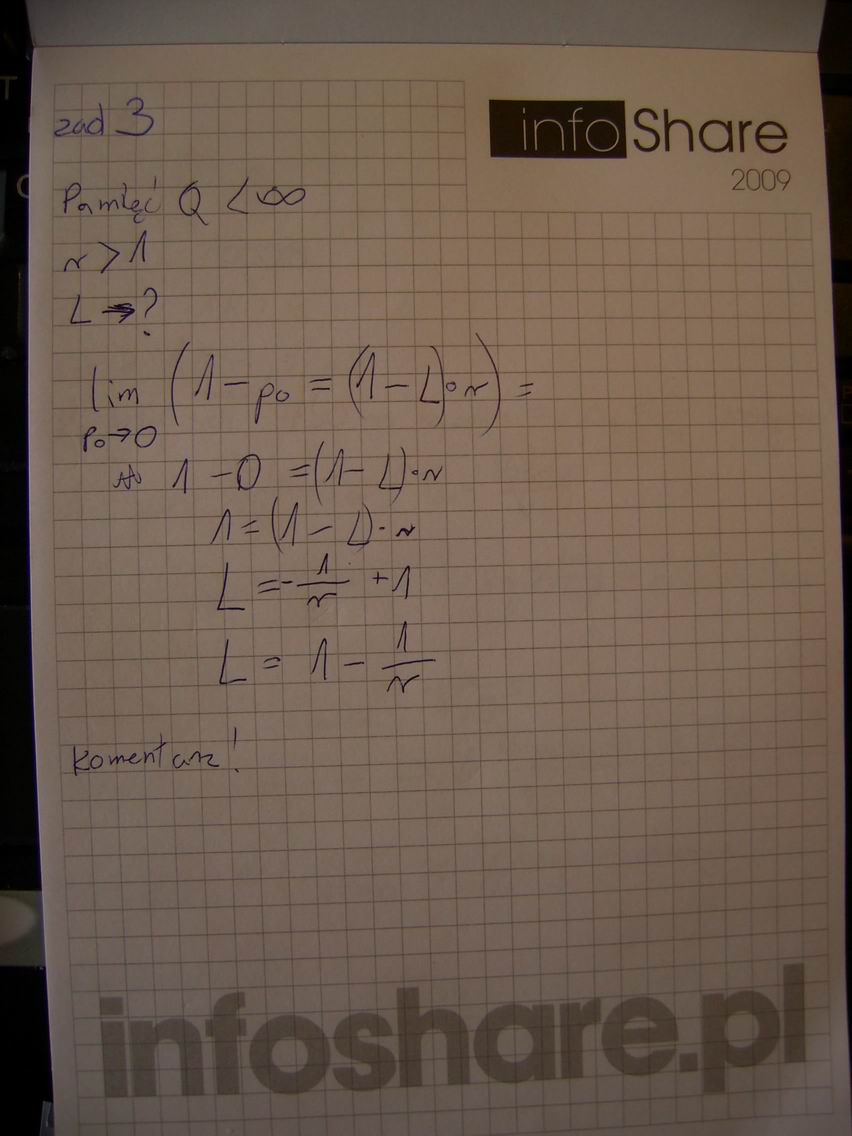 zad 3
infoShare
2009
Pamięć Q < ∞
r > 1
L → ?
lim (1 - po = (1 - L) · r) =
po→0
1 - 0 = (1 - L) · r
1 = (1 - L) · r
L = - 1/r + 1
L = 1 - 1/r
komentarz!
infoshare.pl